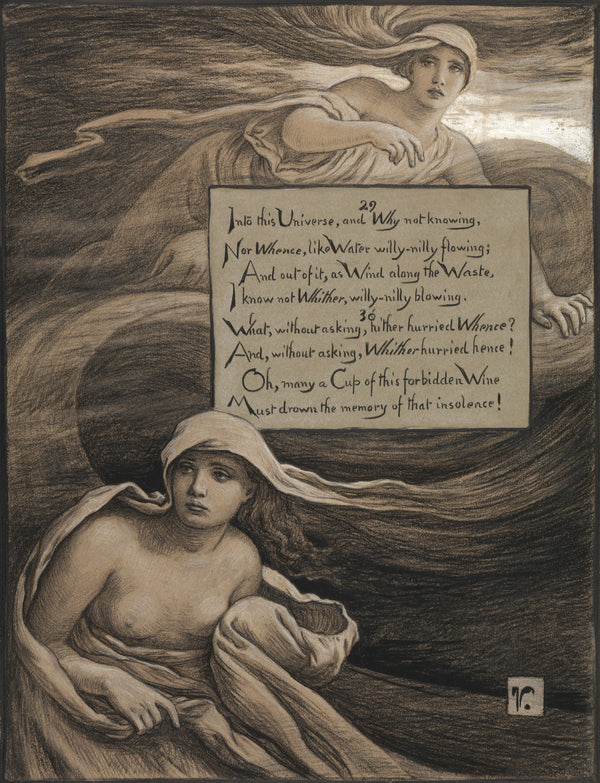 29
Into this Universe, and Why not knowing,
Nor Whence, like Water willy-nilly flowing;
And out of it, as Wind along the Waste,
I know not Whither, willy-nilly blowing.
30
What, without asking, hither hurried Whence?
And, without asking, Whither hurried hence!
Oh, many a Cup of this forbidden Wine
Must drown the memory of that insolence!
V.